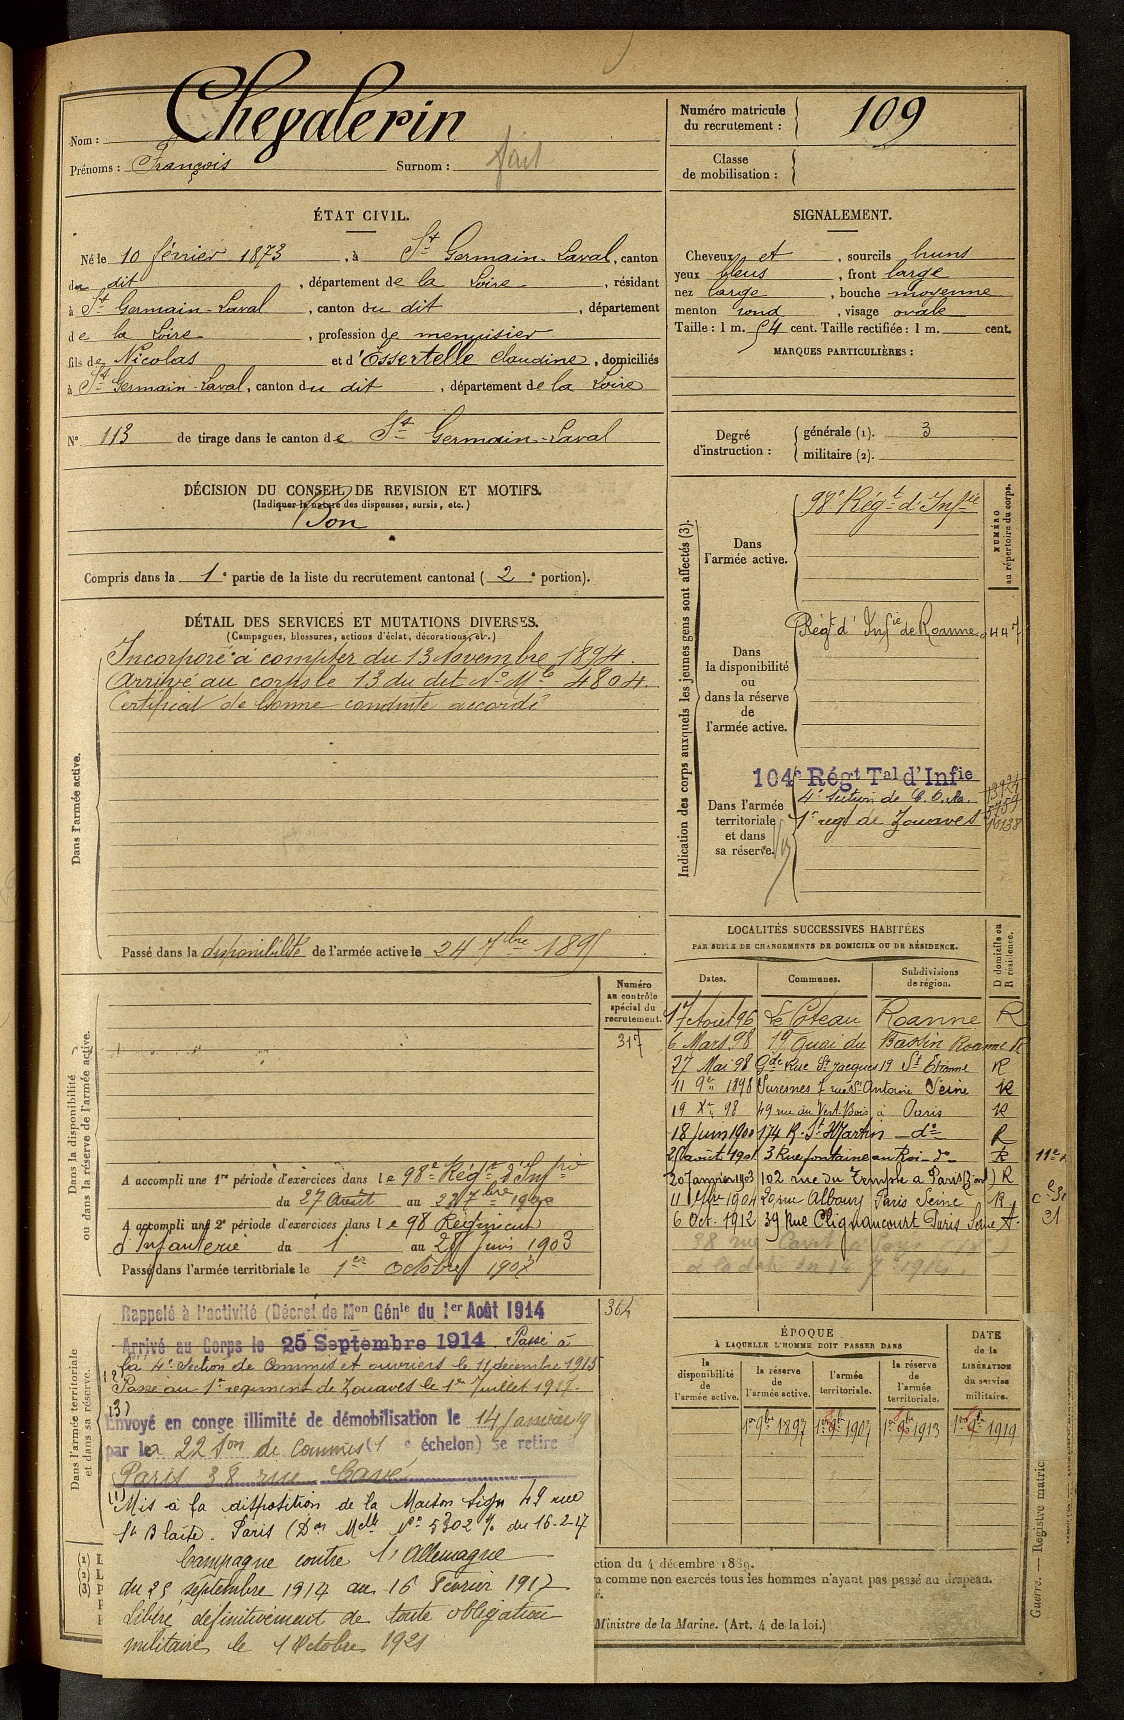 Nom : Chevalerin
Prénoms : François Surnom : fait
Numéro matricule du recrutement : 109
Classe de mobilisation :
ÉTAT CIVIL.
Né le 10 février 1873, à St Germain-Laval, canton
du dit, département de la Loire, résidant
à St Germain-Laval, canton du dit, département
de la Loire, profession de menuisier
fils de Nicolas et d'Essertelle Claudine, domiciliés
à St Germain-Laval, canton du dit, département de la Loire
N° 113 de tirage dans le canton de St Germain-Laval
SIGNALEMENT.
Cheveux et, sourcils bruns
yeux bleus, front large
nez large, bouche moyenne
menton rond, visage ovale
Taille : 1 m. 54 cent. Taille rectifiée : 1 m. cent.
MARQUES PARTICULIÈRES :
Degré d'instruction : générale (1). 3
militaire (2).
DÉCISION DU CONSEIL DE REVISION ET MOTIFS.
(Indiquer la nature des dispenses, sursis, etc.)
Bon
Compris dans la 1e partie de la liste du recrutement cantonal (2e portion).
DÉTAIL DES SERVICES ET MUTATIONS DIVERSES.
(Campagnes, blessures, actions d'éclat, décorations, etc.)
Dans l'armée active.
Incorporé à compter du 13 Novembre 1894.
Arrivé au corps le 13 du dit N° Mle 4804
Certificat de bonne conduite accordé
Passé dans la disponibilité de l'armée active le 24 7bre 1895
Indication des corps auxquels les jeunes gens sont affectés (3).
NUMÉRO au répertoire du corps.
Dans l'armée active.
98e Régt d'Infie
Dans la disponibilité ou dans la réserve de l'armée active.
Régt d'Infie de Roanne 447
Dans l'armée territoriale et dans sa réserve.
104e Régt Tal d'Infie
4e Section de C.O.A.
1er regt de Zouaves 10138
LOCALITÉS SUCCESSIVES HABITÉES
PAR SUITE DE CHANGEMENTS DE DOMICILE OU DE RÉSIDENCE.
Dates. Communes. Subdivisions de région. D domicile ou R résidence.
17 Août 96 Le Coteau Roanne R
6 Mars 98 19 Quai du Bassin Roanne R
27 Mai 98 Gde Rue St Jacques 19 St Etienne R
11 9re 1898 Suresnes 7 rue St Antoine Seine R
19 Xre 98 49 rue du Vert-Bois à Paris R
18 Juin 1900 174 R. St Martin do R
août 1901 3 Rue fontaine au Roi do R
20 Janvier 1903 102 rue du Temple à Paris R
1904 20 rue Albouy Paris Seine R
6 Oct. 1912 39 Rue Clignancourt Paris Seine
Dans la disponibilité ou dans la réserve de l'armée active.
Numéro au contrôle spécial du recrutement.
317
A accompli une 1re période d'exercices dans le 98e Régt d'Infrie
du 27 Août au 23 7bre 1900
A accompli une 2e période d'exercices dans le 98 Regiment
d'Infanterie du 1 au 28 Juin 1903
Passé dans l'armée territoriale le 1er Octobre 1907
Dans l'armée territoriale et dans sa réserve.
364
Rappelé à l'activité (Décret de Mon Génle du 1er Août 1914
Arrivé au Corps le 25 Septembre 1914. Passé à
la 4e Section de Commis et ouvriers le 11 décembre 1915
(2) Passé au 1er regiment de Zouaves le 1er Juillet 1917.
(3) Envoyé en conge illimité de démobilisation le 14 Janvier 19
par le 22 Son de Commis (1e échelon) se retire à
Paris 38 rue Cavé
(1) Mis à la disposition de la Maison 49 rue
St Blaise. Paris (Don Melle No 5302 % du 16-2-17
Campagne contre l'Allemagne
du 25 septembre 1914 au 16 Fevrier 1917
Libéré définitivement de toute obligation
militaire le 1 Octobre 1921
ÉPOQUE
À LAQUELLE L'HOMME DOIT PASSER DANS
la disponibilité de l'armée active. la réserve de l'armée active. l'armée territoriale. la réserve de l'armée territoriale.
DATE de la LIBÉRATION du service militaire.
1er 9bre 1897 1er 1907 1er 1913 1er 1919
ction du 4 décembre 1889.
a comme non exercés tous les hommes n'ayant pas passé au drapeau.
Ministre de la Marine. (Art. 4 de la loi.)
Guerre. — Registre matric